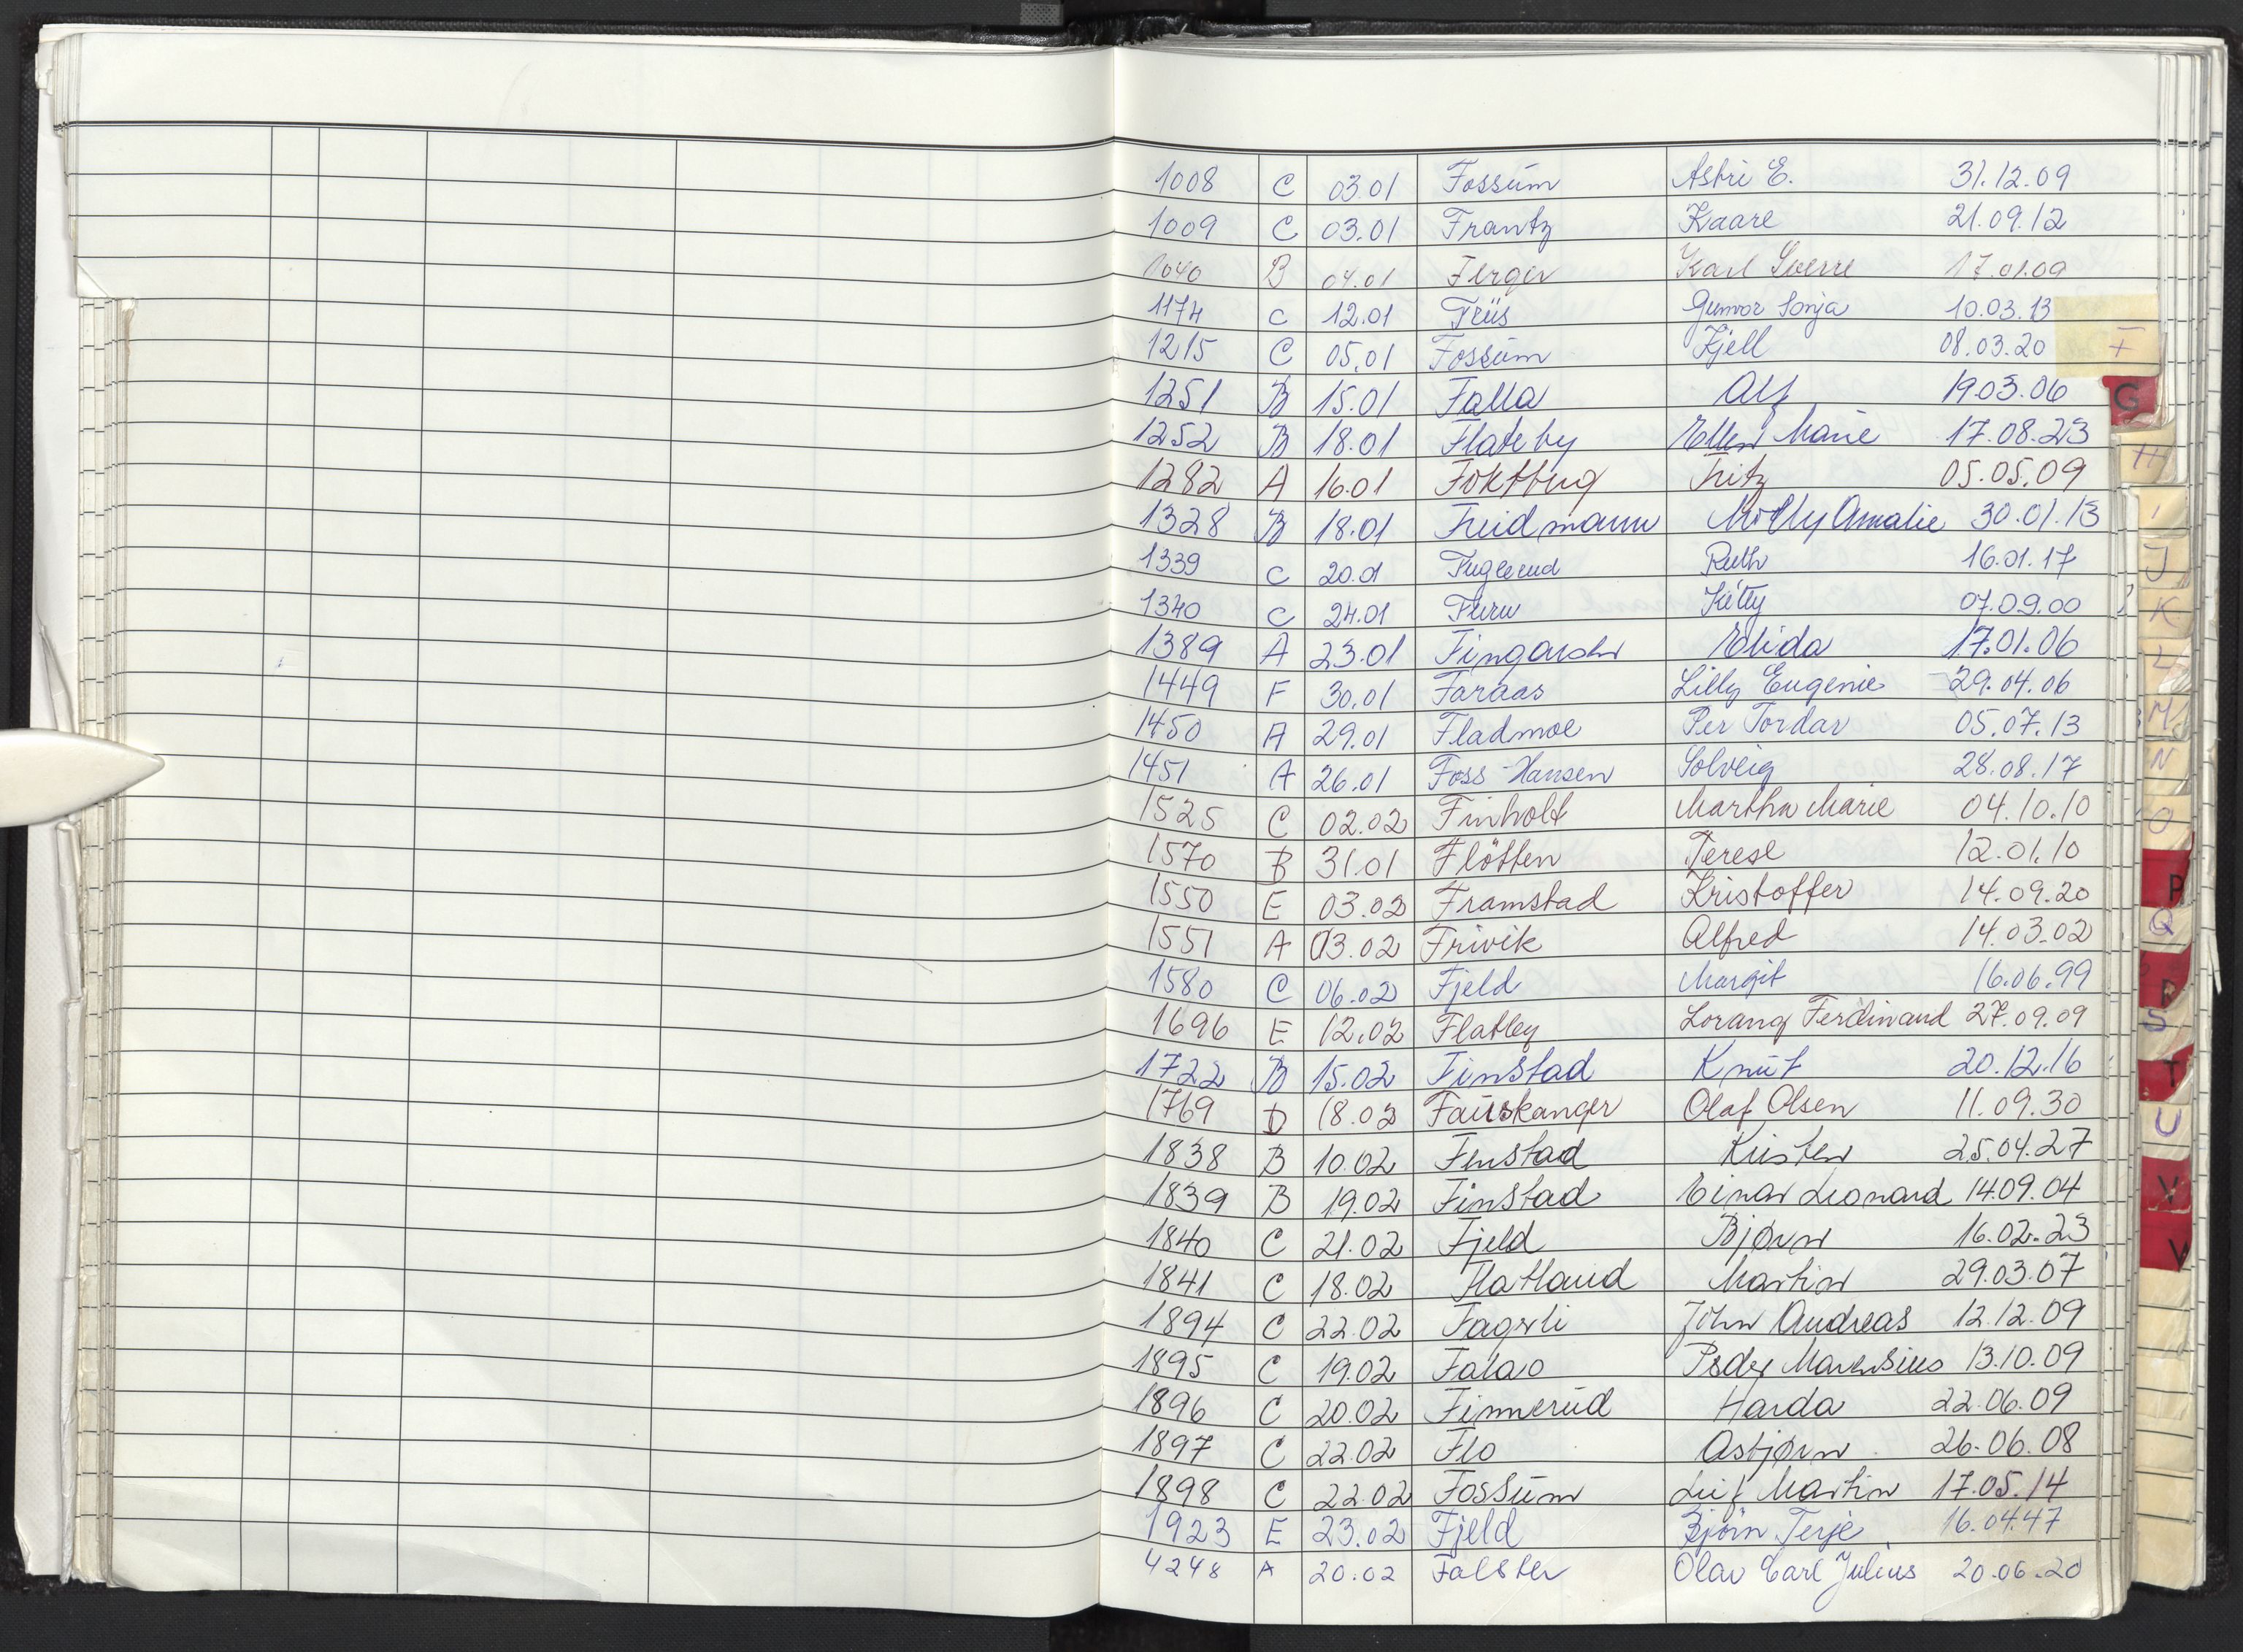 1008 C 03.01 Fossum Astri E. 31.12.09
1009 C 03.01 Frantz Kaare 21.09.12
1040 B 04.01 Ferger Karl Sverre 17.01.09
1174 C 12.01 Friis Gunvor Sonja 10.03.13
1215 C 05.01 Fossum Kjell 08.03.20
F
1251 B 15.01 Falla Alf 19.03.06
G
1252 B 18.01 Flateby Ellen Marie 17.08.23
H
1282 A 16.01 Fritz 05.05.09
1328 B 18.01 Freidmann Molly Amalie 30.01.13
I
1339 C 20.01 Fuglerud Ruth 16.01.17
J
1340 C 24.01 Furu Kitty 07.09.00
K
1389 A 23.01 Elida 17.01.06
L
1449 F 30.01 Faraas Lilly Eugenie 29.04.06
1450 A 29.01 Fladmoe Per Tordar 05.07.13
M
1451 A 26.01 Foss-Hansen Solveig 28.08.17
N
1525 C 02.02 Finholt Martha Marie 04.10.10
O
1570 B 31.01 Fløtten Terese 12.01.10
1550 E 03.02 Framstad Kristoffer 14.09.20
P
1551 A 03.02 Frivik Alfred 14.03.02
Q
1580 C 06.02 Fjeld Margit 16.06.99
R
1696 E 12.02 Flatby Lorang Ferdinand 27.09.09
S
1722 B 15.02 Finstad Knut 20.12.16
T
1769 D 18.02 Fauskanger Olaf Olsen 11.09.30
U
1838 B 10.02 Finstad Kirsten 25.04.27
1839 B 19.02 Finstad Einar Leonard 14.09.04
V
1840 C 21.02 Fjeld Bjørn 16.02.23
1841 C 18.02 Flatland Martin 29.03.07
1894 C 22.02 Fagerli John Andreas 12.12.09
1895 C 19.02 Falao Peder 13.10.09
1896 C 20.02 Finnerud Harda 22.06.09
1897 C 22.02 Flo Asbjørn 26.06.08
1898 C 22.02 Fossum Leif Martin 17.05.14
1923 E 23.02 Fjeld Bjørn Terje 16.04.47
4248 A 20.02 Falster Olav Carl Julius 20.06.20